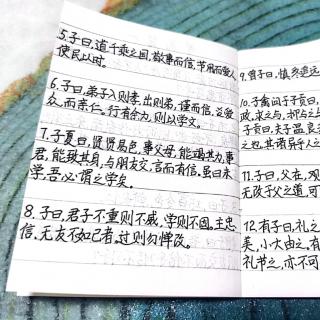 5.子曰,道千乘之国,敬事而信,节用而爱人
使民以时。
6.子曰,弟子入则孝,出则弟,谨而信,泛爱
众,而亲仁。行有余力,则以学文。
7.子夏曰,贤贤易色,事父母,能竭其力,事
君,能致其身,与朋友交,言而有信。虽曰未
学,吾必谓之学矣。
8.子曰,君子不重则不威,学则不固。主忠
信。无友不如己者,过则勿惮改。
9.曾子曰,慎终追远
10.子禽问于子贡曰
政,求之与,抑与之
子贡曰,夫子温,良
之也,其诸异乎人之
11.子曰,父在,观
无改于父之道,可
12.有子曰,礼之
美,小大由之。有
礼节之,亦不可